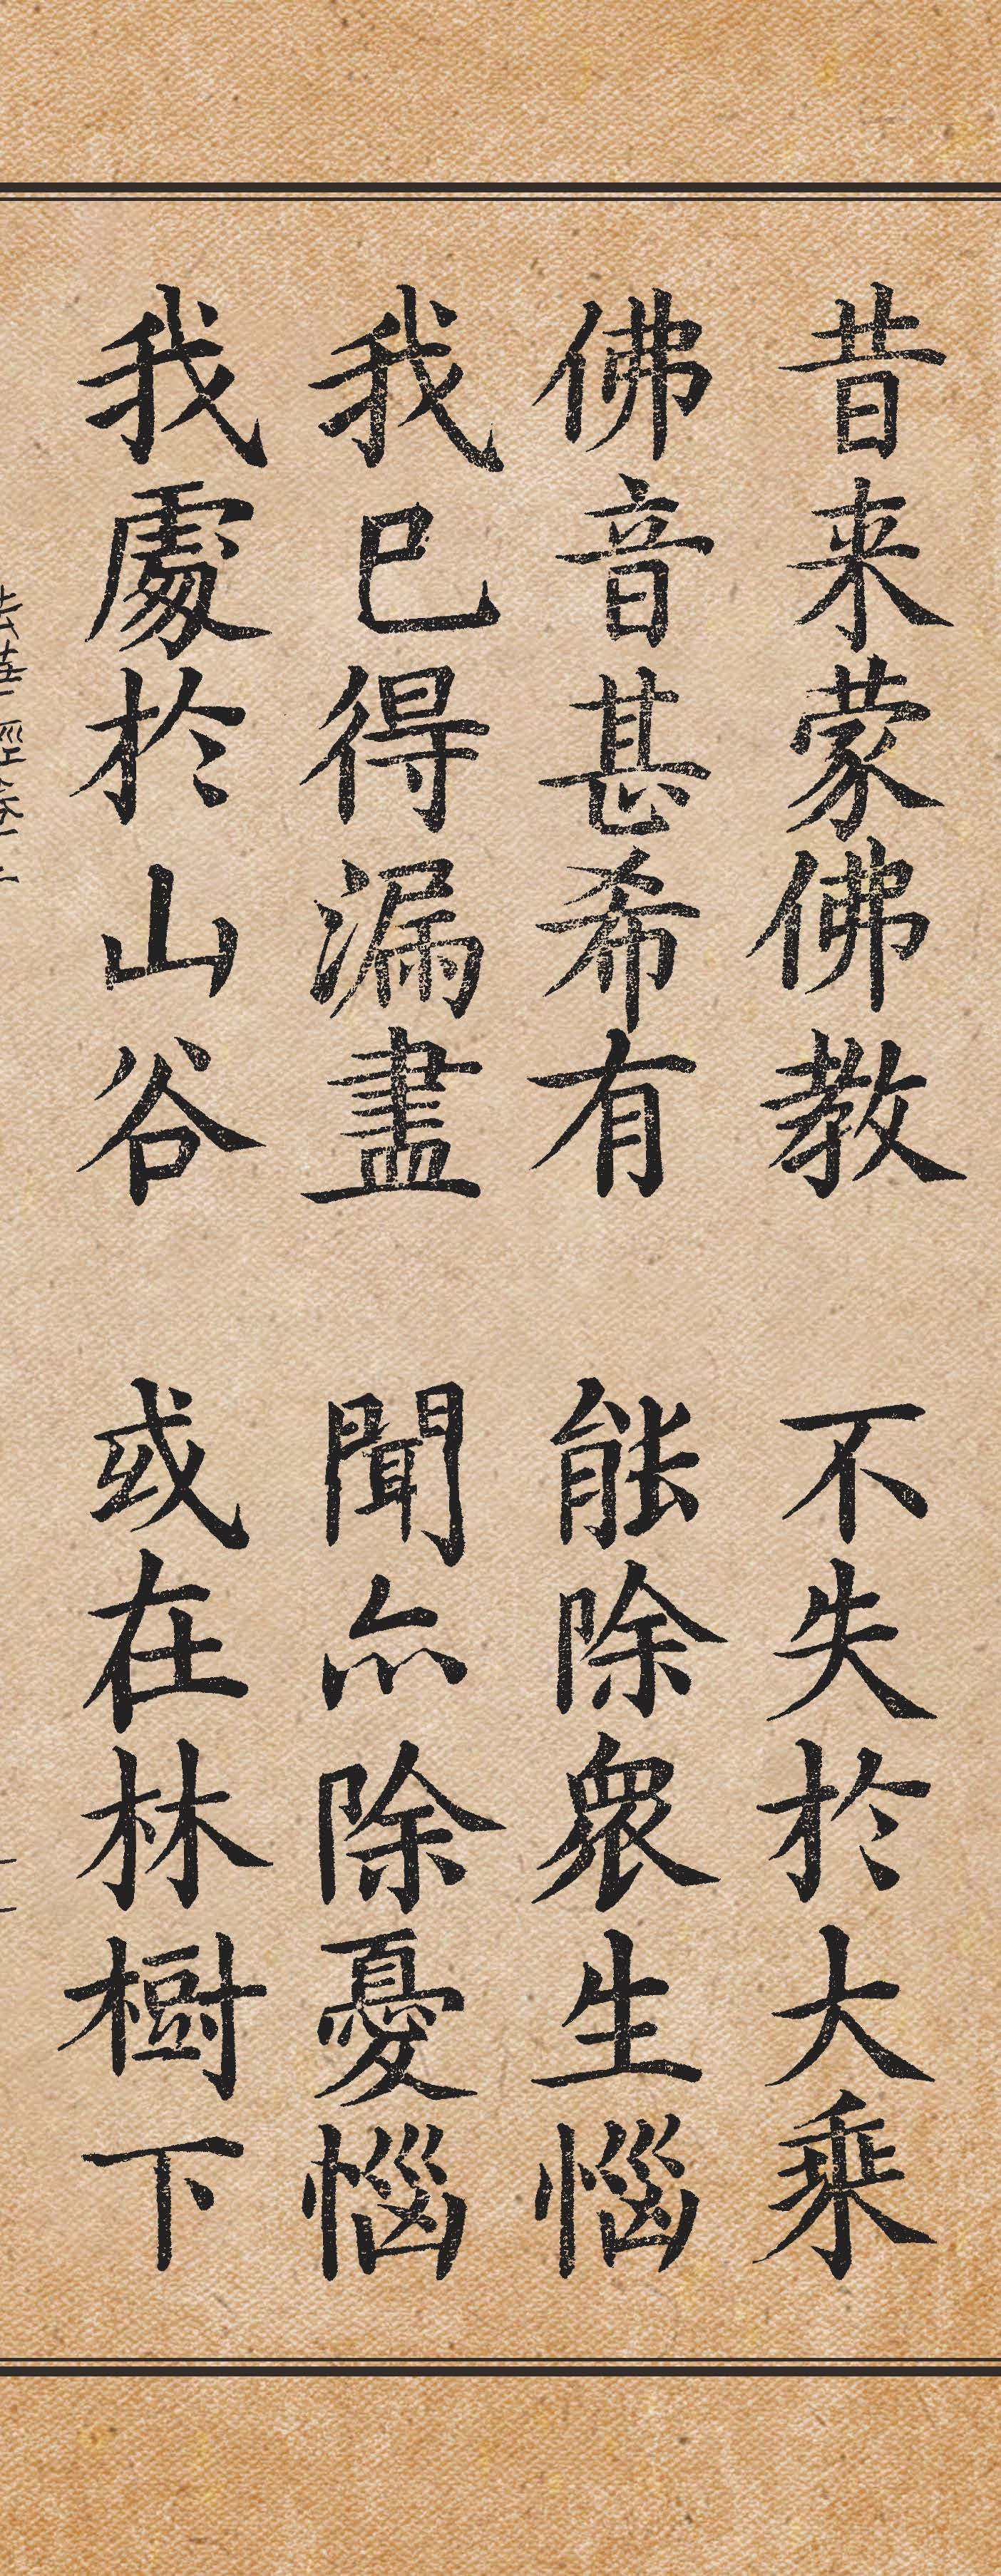 昔来蒙佛教　不失於大乗
佛音甚希有　能除衆生惱
我已得漏盡　聞亦除憂惱
我處於山谷　或在林樹下